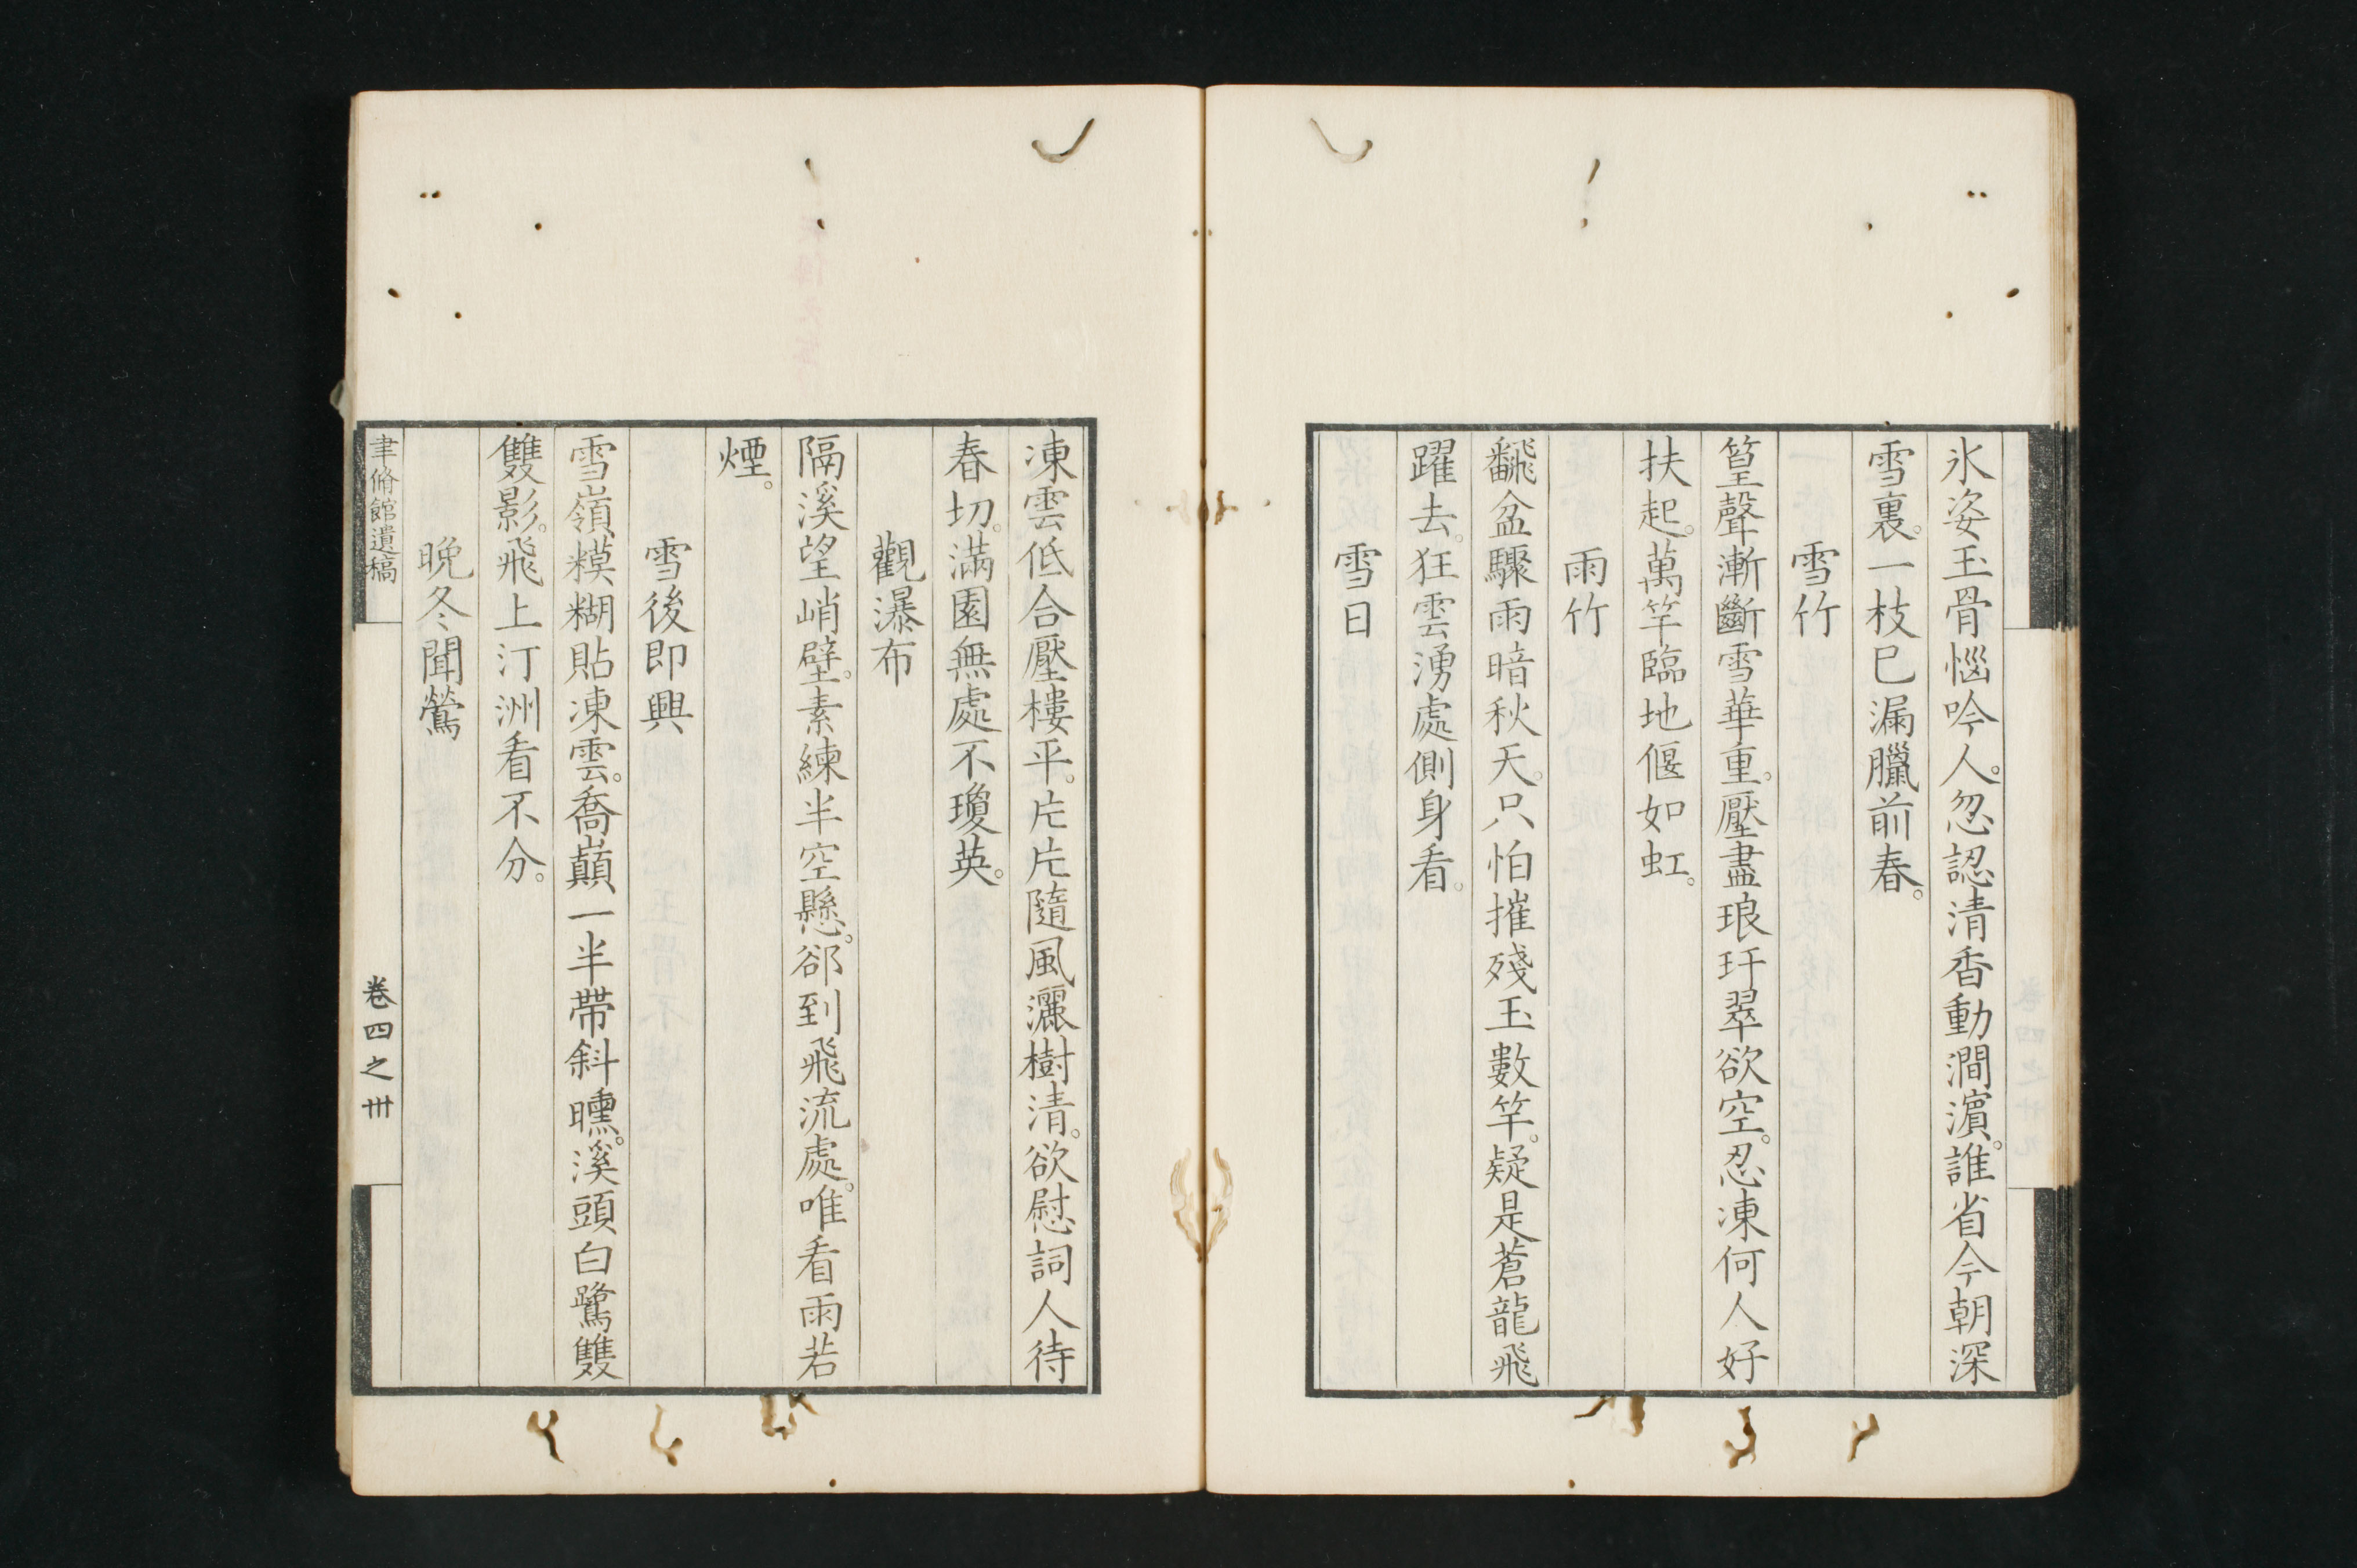 氷姿玉骨惱吟人。忽認清香動澗濵。誰省今朝深
雪裏。一枝巳漏臘前春。
雪竹
篁聲漸斷雪華重。壓盡琅玕翠欲空。忍凍何人好
扶起。萬竿臨地偃如虹。
雨竹
飜盆驟雨暗秋天。只怕摧殘玉數竿。疑是蒼龍飛
躍去。狂雲湧處側身看。
雪日
凍雲低合壓樓平。片片隨風灑樹清。欲慰詞人待
春切。滿園無處不瓊英。
觀瀑布
隔溪望峭壁。素練半空懸。郤到飛流處。唯看雨若
煙。
雪後即興
雪嶺糢糊貼凍雲。喬巓一半帶斜曛。溪頭白鷺雙
雙影。飛上汀洲看不分。
晩冬聞鶯
聿脩館遺稿
卷四之卅